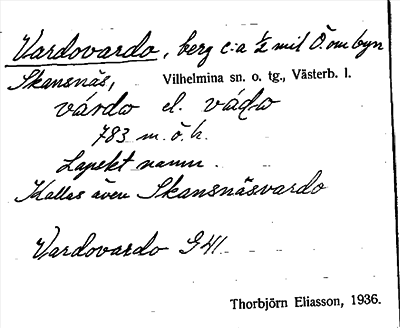 Vardovardo, berg c:a ½ mil Ö. om byn
Skansnäs, Vilhelmina sn. o. tg., Västerb. l.
várdo el. vádo
783 m. ö. h.
Lapskt namn.
Kallas även Skansnäsvardo
Vardovardo G41
Thorbjörn Eliasson, 1936.